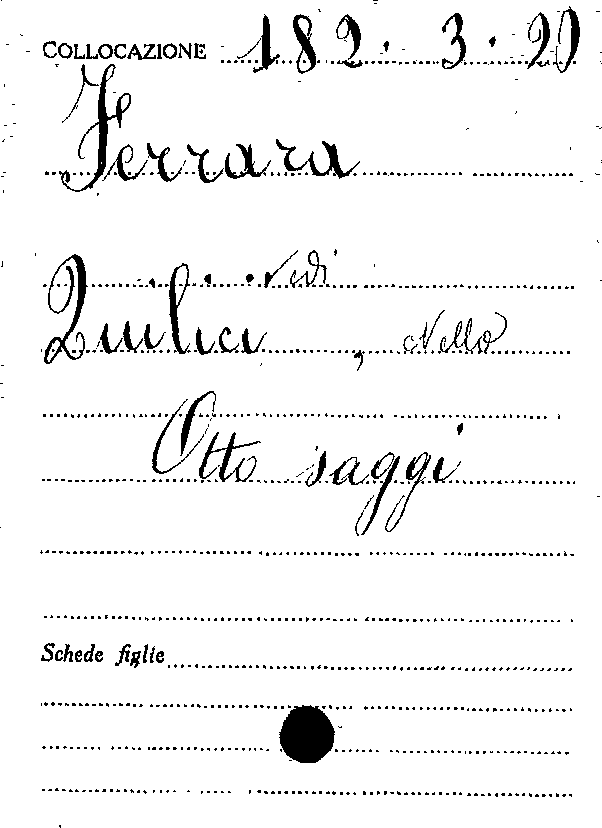 COLLOCAZIONE 182.3.20
Ferrara
vedi
Quilici, Nello
Otto saggi
Schede figlie